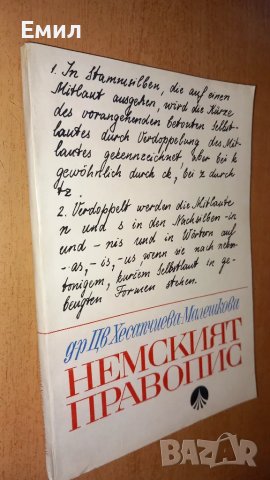 Емил
1. In Stammsilben, die auf einen
Mitlaut ausgehen, wird die Kürze
des vorangehenden betonten Selbst-
lautes durch Verdoppelung des Mit-
lautes gekennzeichnet, aber bei k
gewöhnlich durch ck, bei z durch
tz.
2. Verdoppelt werden die Mitlaute
n und s in den Nachsilben -in
und -nis und in Wörtern auf
-as, -is, -us wenn sie nach neben-
tonigem, kurzem Selbstlaut in ge-
beugten Formen stehen.
д-р Цв. Хесапчиева-Малешкова
НЕМСКИЯТ
ПРАВОПИС
BAZAR
bg